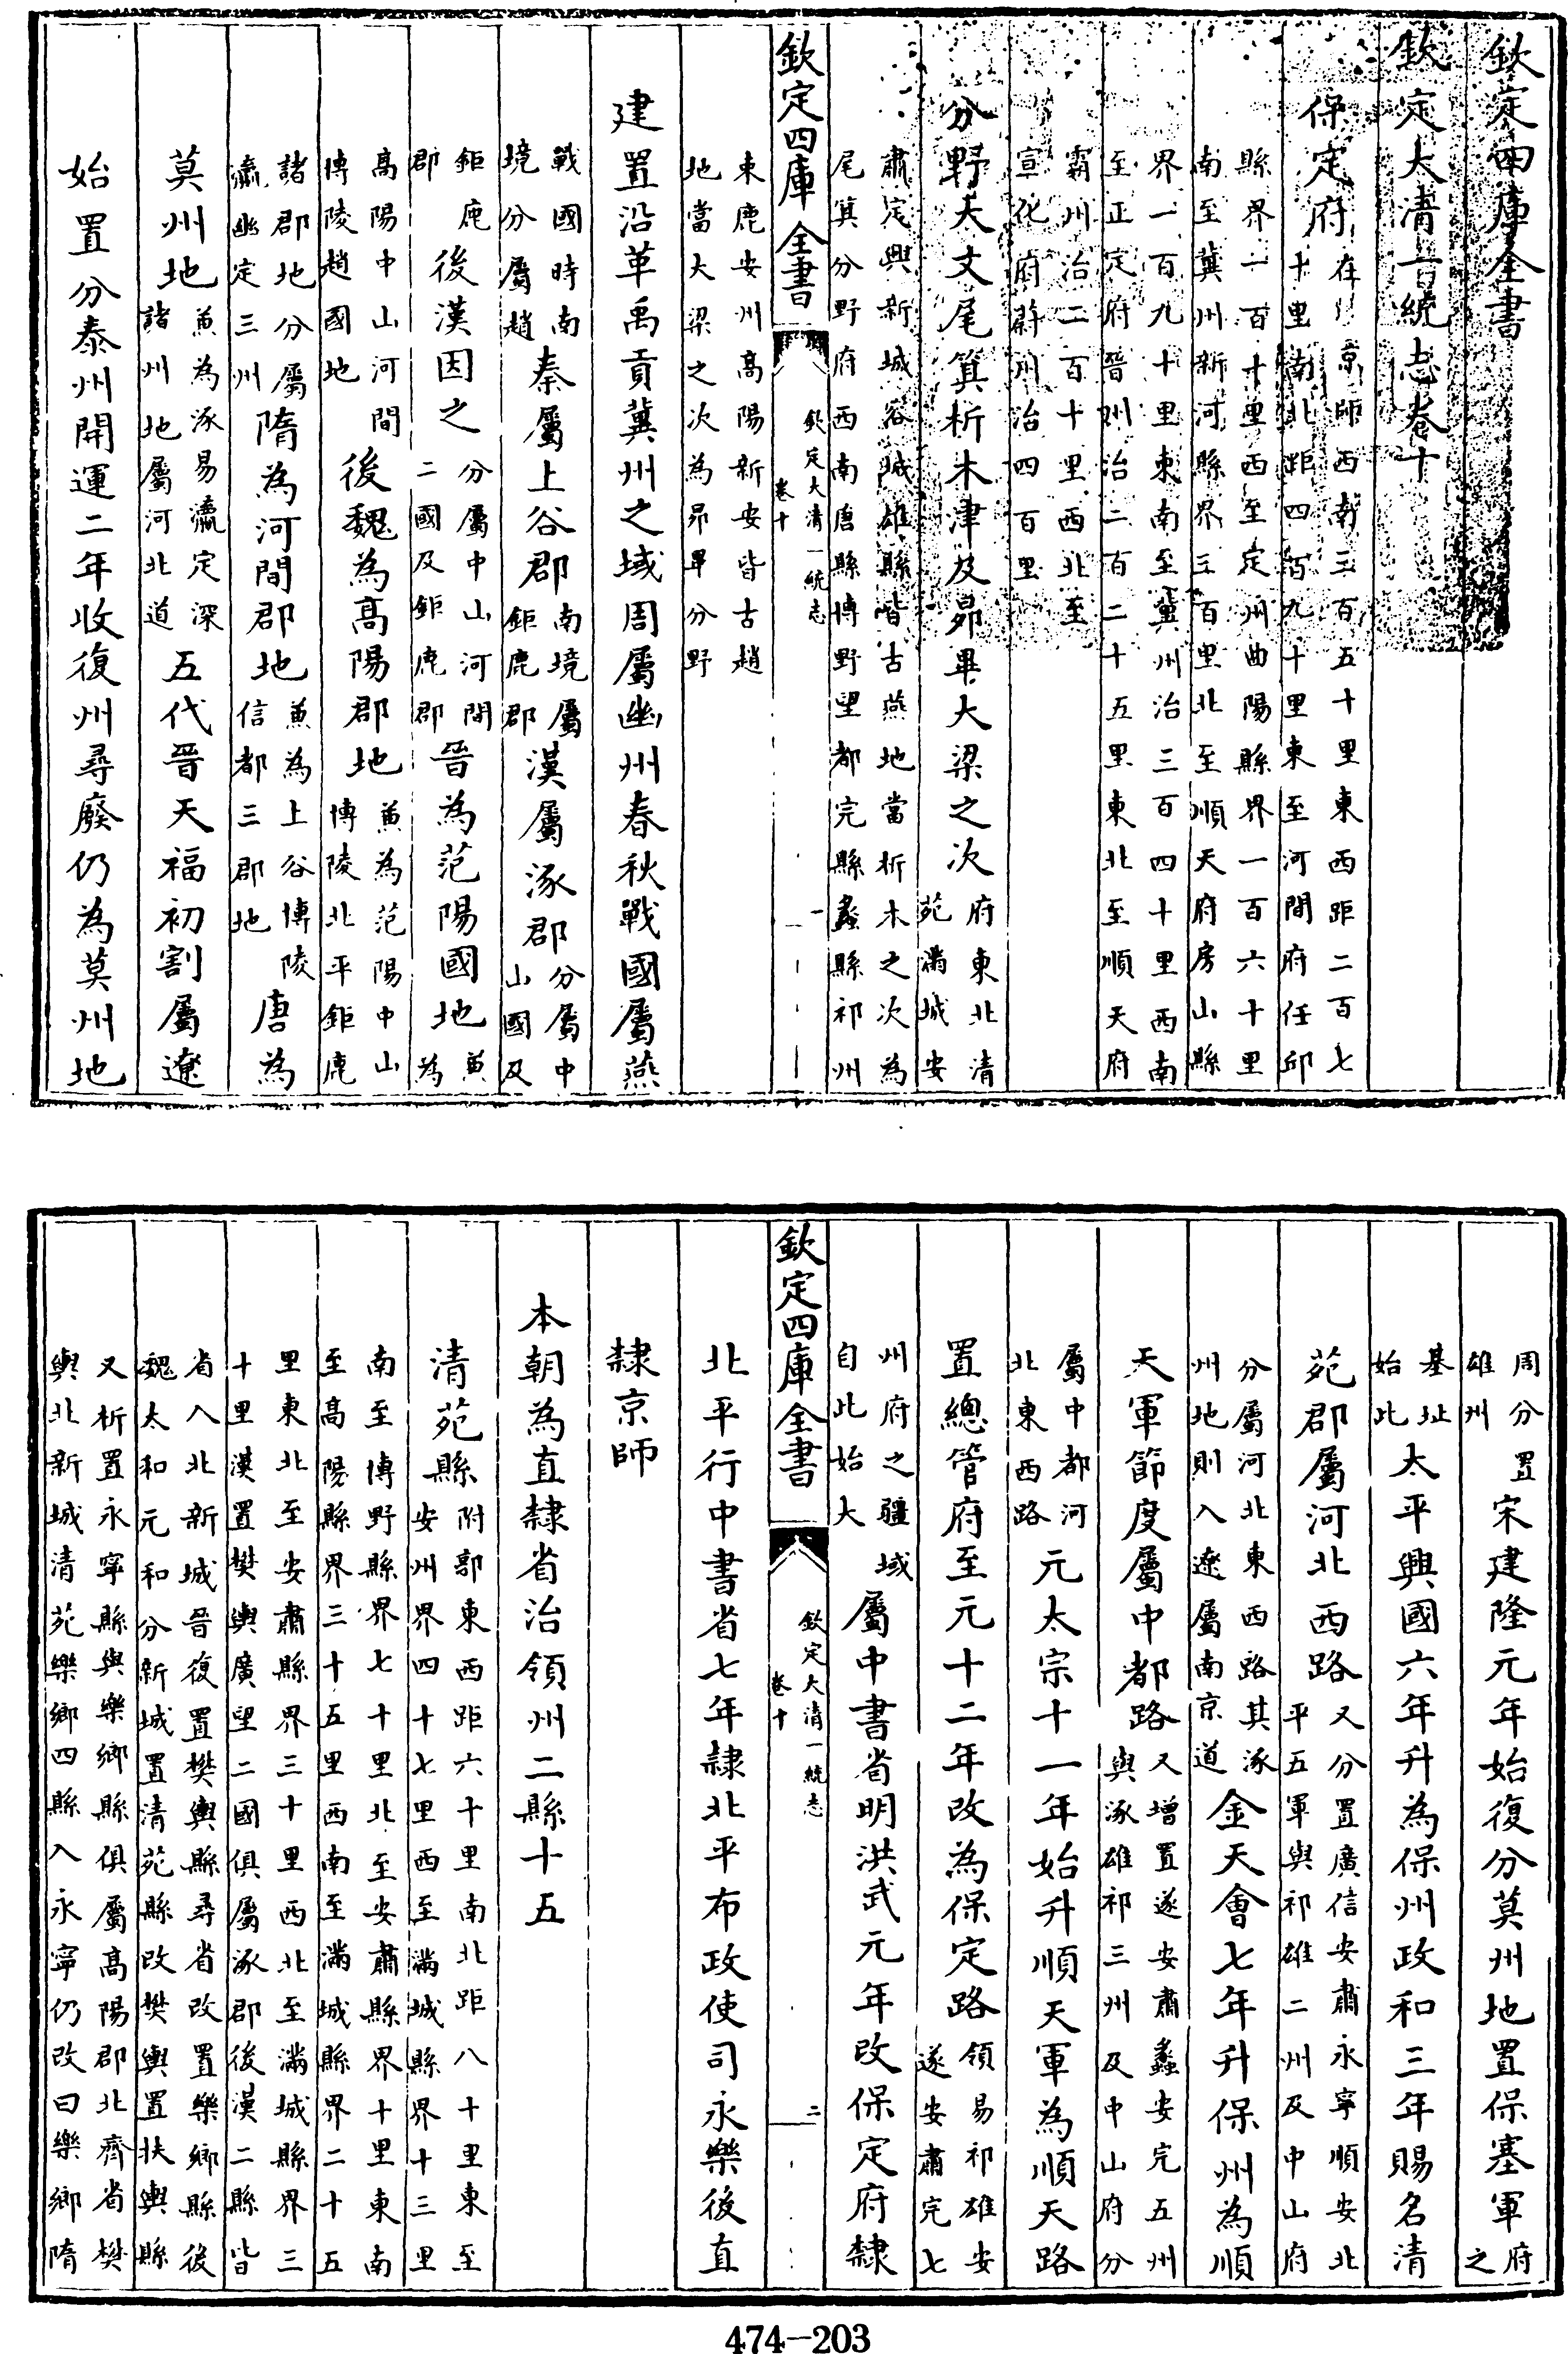 欽定四庫全書
欽定大清一統志卷十
保定府在京師西南三百五十里東西距二百七
十里南北距四百九十里東至河間府任邱
縣界一百十里西至定州曲陽縣界一百六十里
南至冀州新河縣界三百里北至順天府房山縣
界一百九十里東南至冀州治三百四十里西南
至正定府晉州治二百二十五里東北至順天府
霸州治二百十里西北至
宣化府蔚州治四百里
分野天文尾箕析木津及昴畢大梁之次府東北清
苑滿城安
肅定興新城容城雄縣皆古燕地當析木之次為
尾箕分野府西南唐縣博野望都完縣蠡縣祁州
欽定四庫全書
欽定大清一統志
卷十
一
束鹿安州高陽新安皆古趙
地當大梁之次為昴畢分野
建置沿革禹貢冀州之域周屬幽州春秋戰國屬燕
戰國時南
境分屬趙秦屬上谷郡南境屬
鉅鹿郡漢屬涿郡分屬中
山國及
鉅鹿
郡後漢因之分屬中山河間
二國及鉅鹿郡晉為范陽國地兼
為
高陽中山河間
博陵趙國地後魏為高陽郡地兼為范陽中山
博陵北平鉅鹿
諸郡地分屬
瀛幽定三州隋為河間郡地兼為上谷博陵
信都三郡地唐為
莫州地兼為涿易瀛定深
諸州地屬河北道五代晉天福初割屬遼
始置分泰州開運二年收復州尋廢仍為莫州地
周分置
雄州宋建隆元年始復分莫州地置保塞軍府
之
基址
始此太平興國六年升為保州政和三年賜名清
苑郡屬河北西路又分置廣信安肅永寧順安北
平五軍與祁雄二州及中山府
分屬河北東西路其涿
州地則入遼屬南京道金天會七年升保州為順
天軍節度屬中都路又增置遂安肅蠡安完五州
與涿雄祁三州及中山府分
屬中都河
北東西路元太宗十一年始升順天軍為順天路
置總管府至元十二年改為保定路領易祁雄安
遂安肅完七
州府之疆域
自此始大屬中書省明洪武元年改保定府隸
欽定四庫全書
欽定大清一統志
卷十
二
北平行中書省七年隸北平布政使司永樂後直
隸京師
本朝為直隸省治領州二縣十五
清苑縣附郭東西距六十里南北距八十里東至
安州界四十七里西至滿城縣界十三里
南至博野縣界七十里北至安肅縣界十里東南
至高陽縣界三十五里西南至滿城縣界二十五
里東北至安肅縣界三十里西北至滿城縣界三
十里漢置樊輿廣望二國俱屬涿郡後漢二縣皆
省入北新城晉復置樊輿縣尋省改置樂鄉縣後
魏太和元和分新城置清苑縣改樊輿置扶輿縣
又析置永寧縣與樂鄉縣俱屬高陽郡北齊省樊
輿北新城清苑樂鄉四縣入永寧仍改曰樂鄉隋
474—203